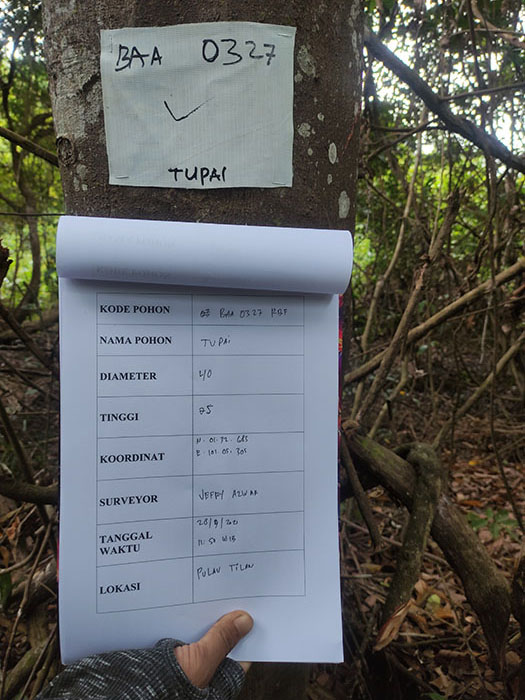 BAA 0327
TUPAI
KODE POHON BAA 0327 RBF
NAMA POHON TUPAI
DIAMETER 40
TINGGI 25
KOORDINAT
E. 101. 05. 305
SURVEYOR JEFFY AZWAR
TANGGAL
WAKTU WIB
LOKASI PULAU TILAN